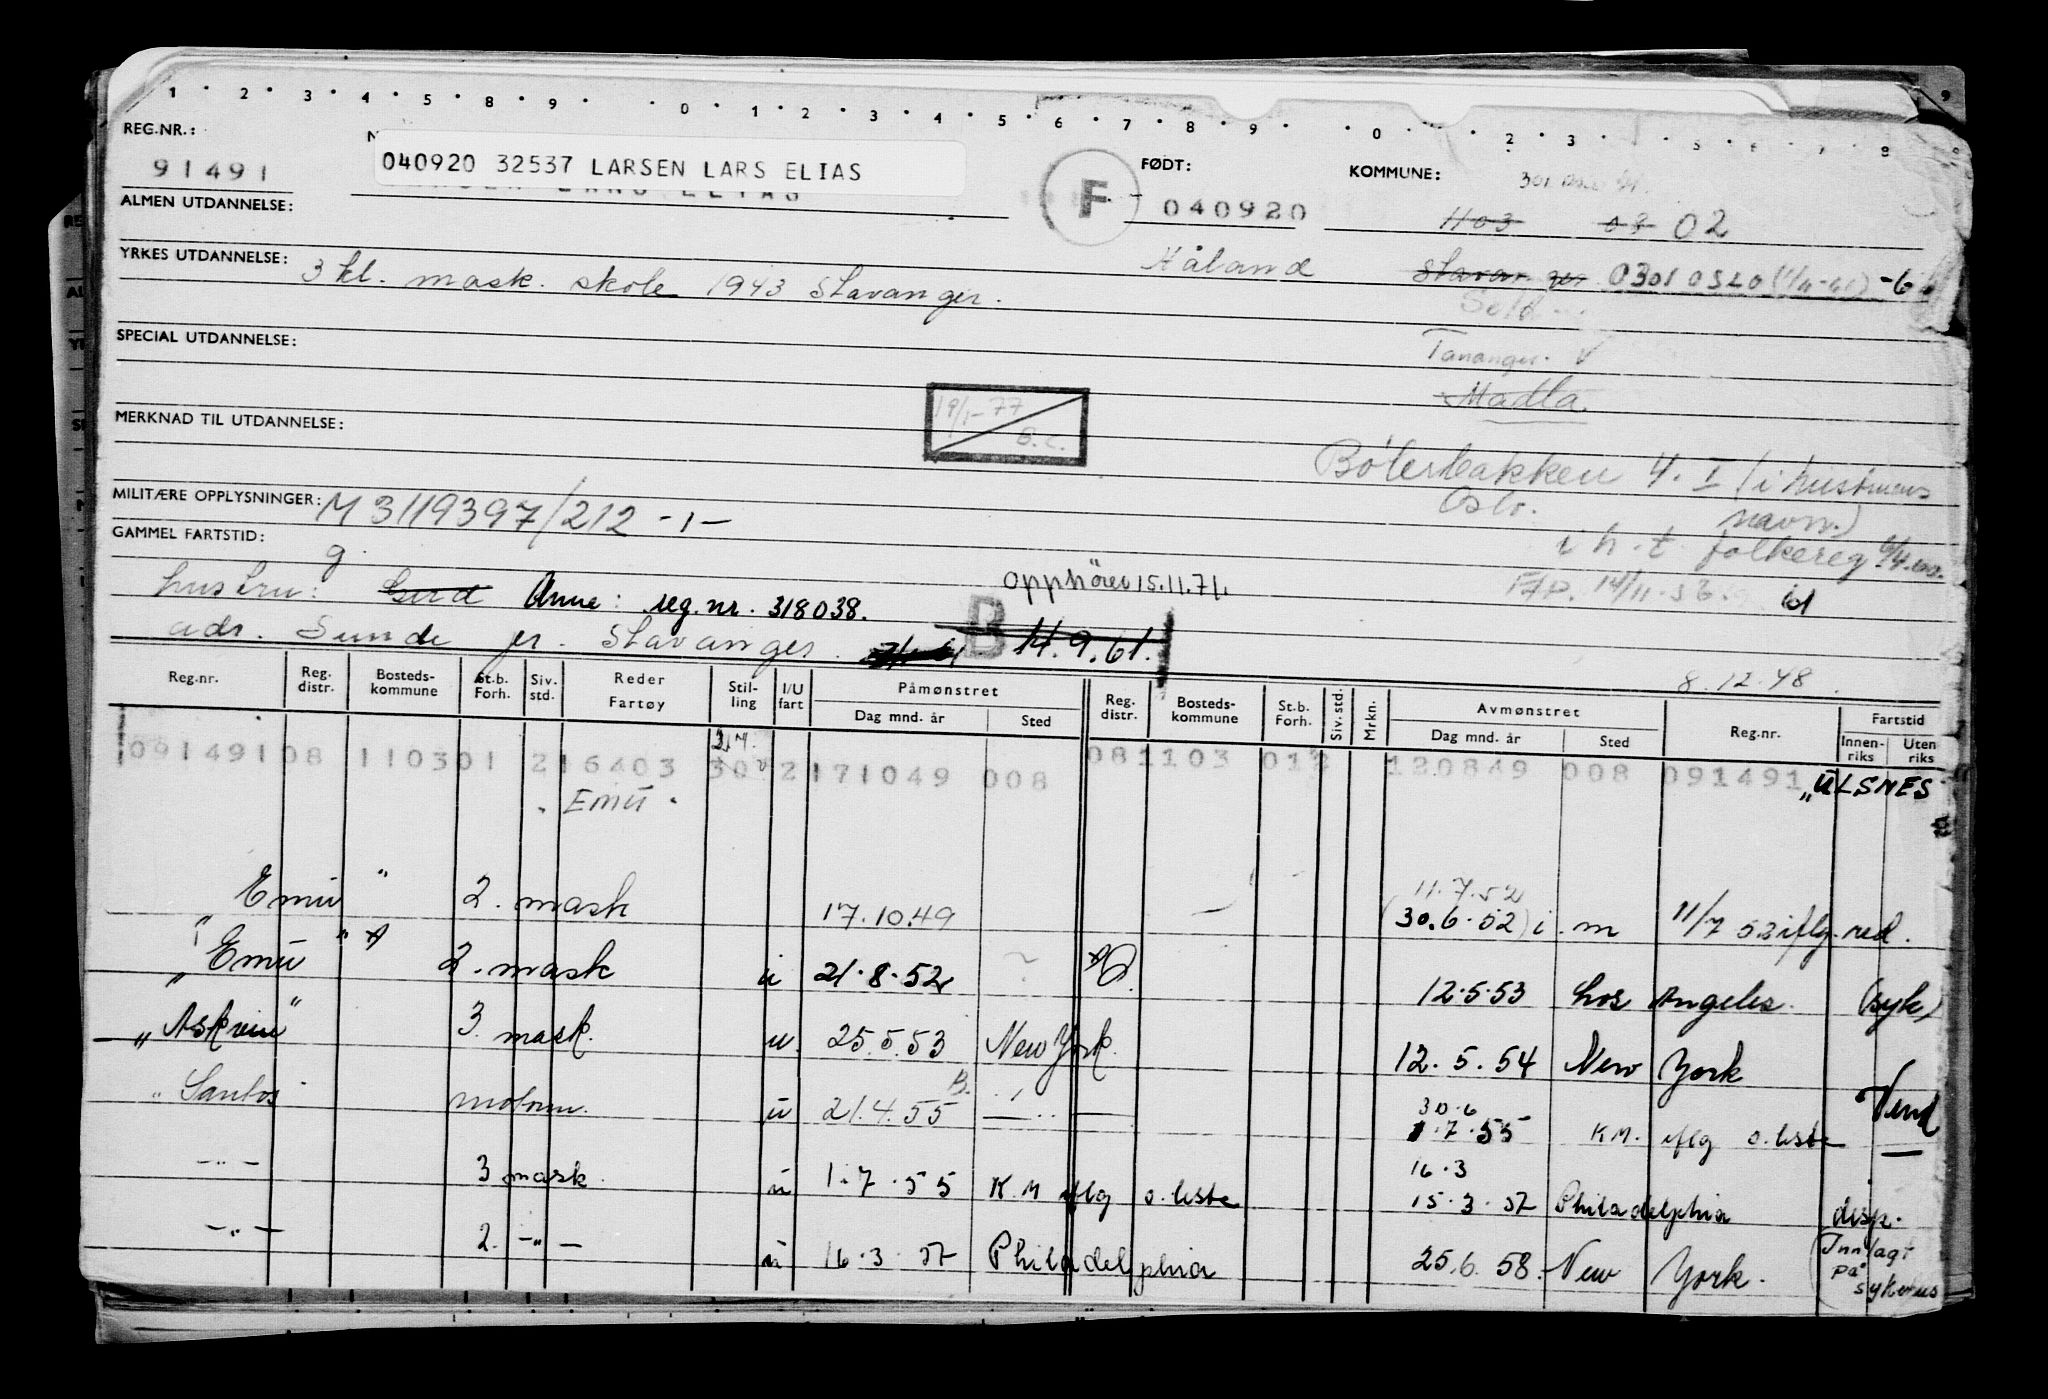 1 · 2 · 3 · 4 · 5 · 8 · 9 · 0 · 1 · 2 · 3 · 4 · 5 · 6 · 7 · 8 · 9 · 0 · 2 · 3
REG.NR.:
91491
040920 32537 LARSEN LARS ELIAS
F
FØDT:
040920
KOMMUNE:
1103 08 02
ALMEN UTDANNELSE:
YRKES UTDANNELSE: 3 kl. mask. skole 1943 Stavanger.
Håland
Stavanger 0301 OSLO
Tananger. V
SPECIAL UTDANNELSE:
Madla.
19/1-77
MERKNAD TIL UTDANNELSE:
Bølerbakken 4. I (i hustruens
navn.)
Oslo.
MILITÆRE OPPLYSNINGER: M 3119397/212 -1-
i h. t. folkereg.
GAMMEL FARTSTID:
g.
hustru: Gerd Anne: reg.nr. 318038.
Opphører 15.11.71.
adr. Sunde pr. Stavanger.
B 14.9.61.
8.12.48.
Reg.nr. Reg. distr. Bosteds-kommune St.b. Forh. Siv. std. Reder Fartøy Stil-ling I/U fart Påmønstret Dag mnd. år Sted Reg. distr. Bosteds-kommune St.b. Forh. Siv. std. Mrkn. Avmønstret Dag mnd. år Sted Reg.nr. Fartstid Innen-riks Uten riks
091491 08 1103 01 2 16403 30 2 171049 008 08 1103 01 120849 008 091491 "ULSNES
"EMU"
Emu " 2. mask 17.10.49 — 11.7.52
(30.6.52) i. m 11/7 52 iflg. red.
"Emu" 2. mask u 21.8.52 12.5.53 Los Angeles. (syk)
"Askvin" 3. mask. u. 25.5.53 New York. 12.5.54 New York
"Santos motorm. u 21.4.55 30.6
1.7.55 K.M. iflg o. liste
-"- 3 mask. u 1.7.55 K.M iflg o. liste 16.3
15.3.57 Philadelphia disp.
-"- 2. -"- u 16.3.57 Philadelphia 25.6.58. New York. (Innlagt
på
sykehus